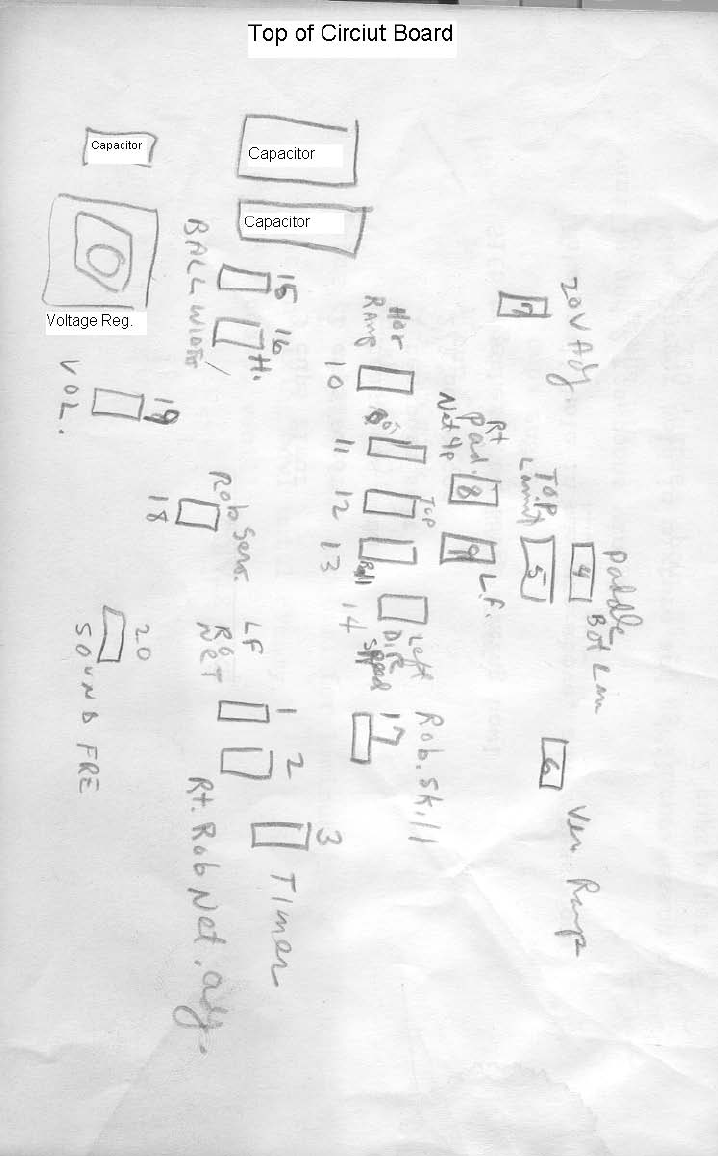 Top of Circiut Board
Capacitor
Capacitor
Capacitor
Voltage Reg.
15
16
BALL WIDTH/
H.
20V Adj.
7
Hor
Ramp
10
11
12
13
14
Rt
Pad.
Net Up
8
9
Lf.
Top
Limit
5
4
Paddle
Bot Lim
VOL.
19
Rob Sens.
18
Top
Ball
Left
Speed
20
SOUND FRE
LF
NET
1
2
Rt. Rob Net. adj.
17
Rob. Skill
6
Ver. Ramp
3
Timer